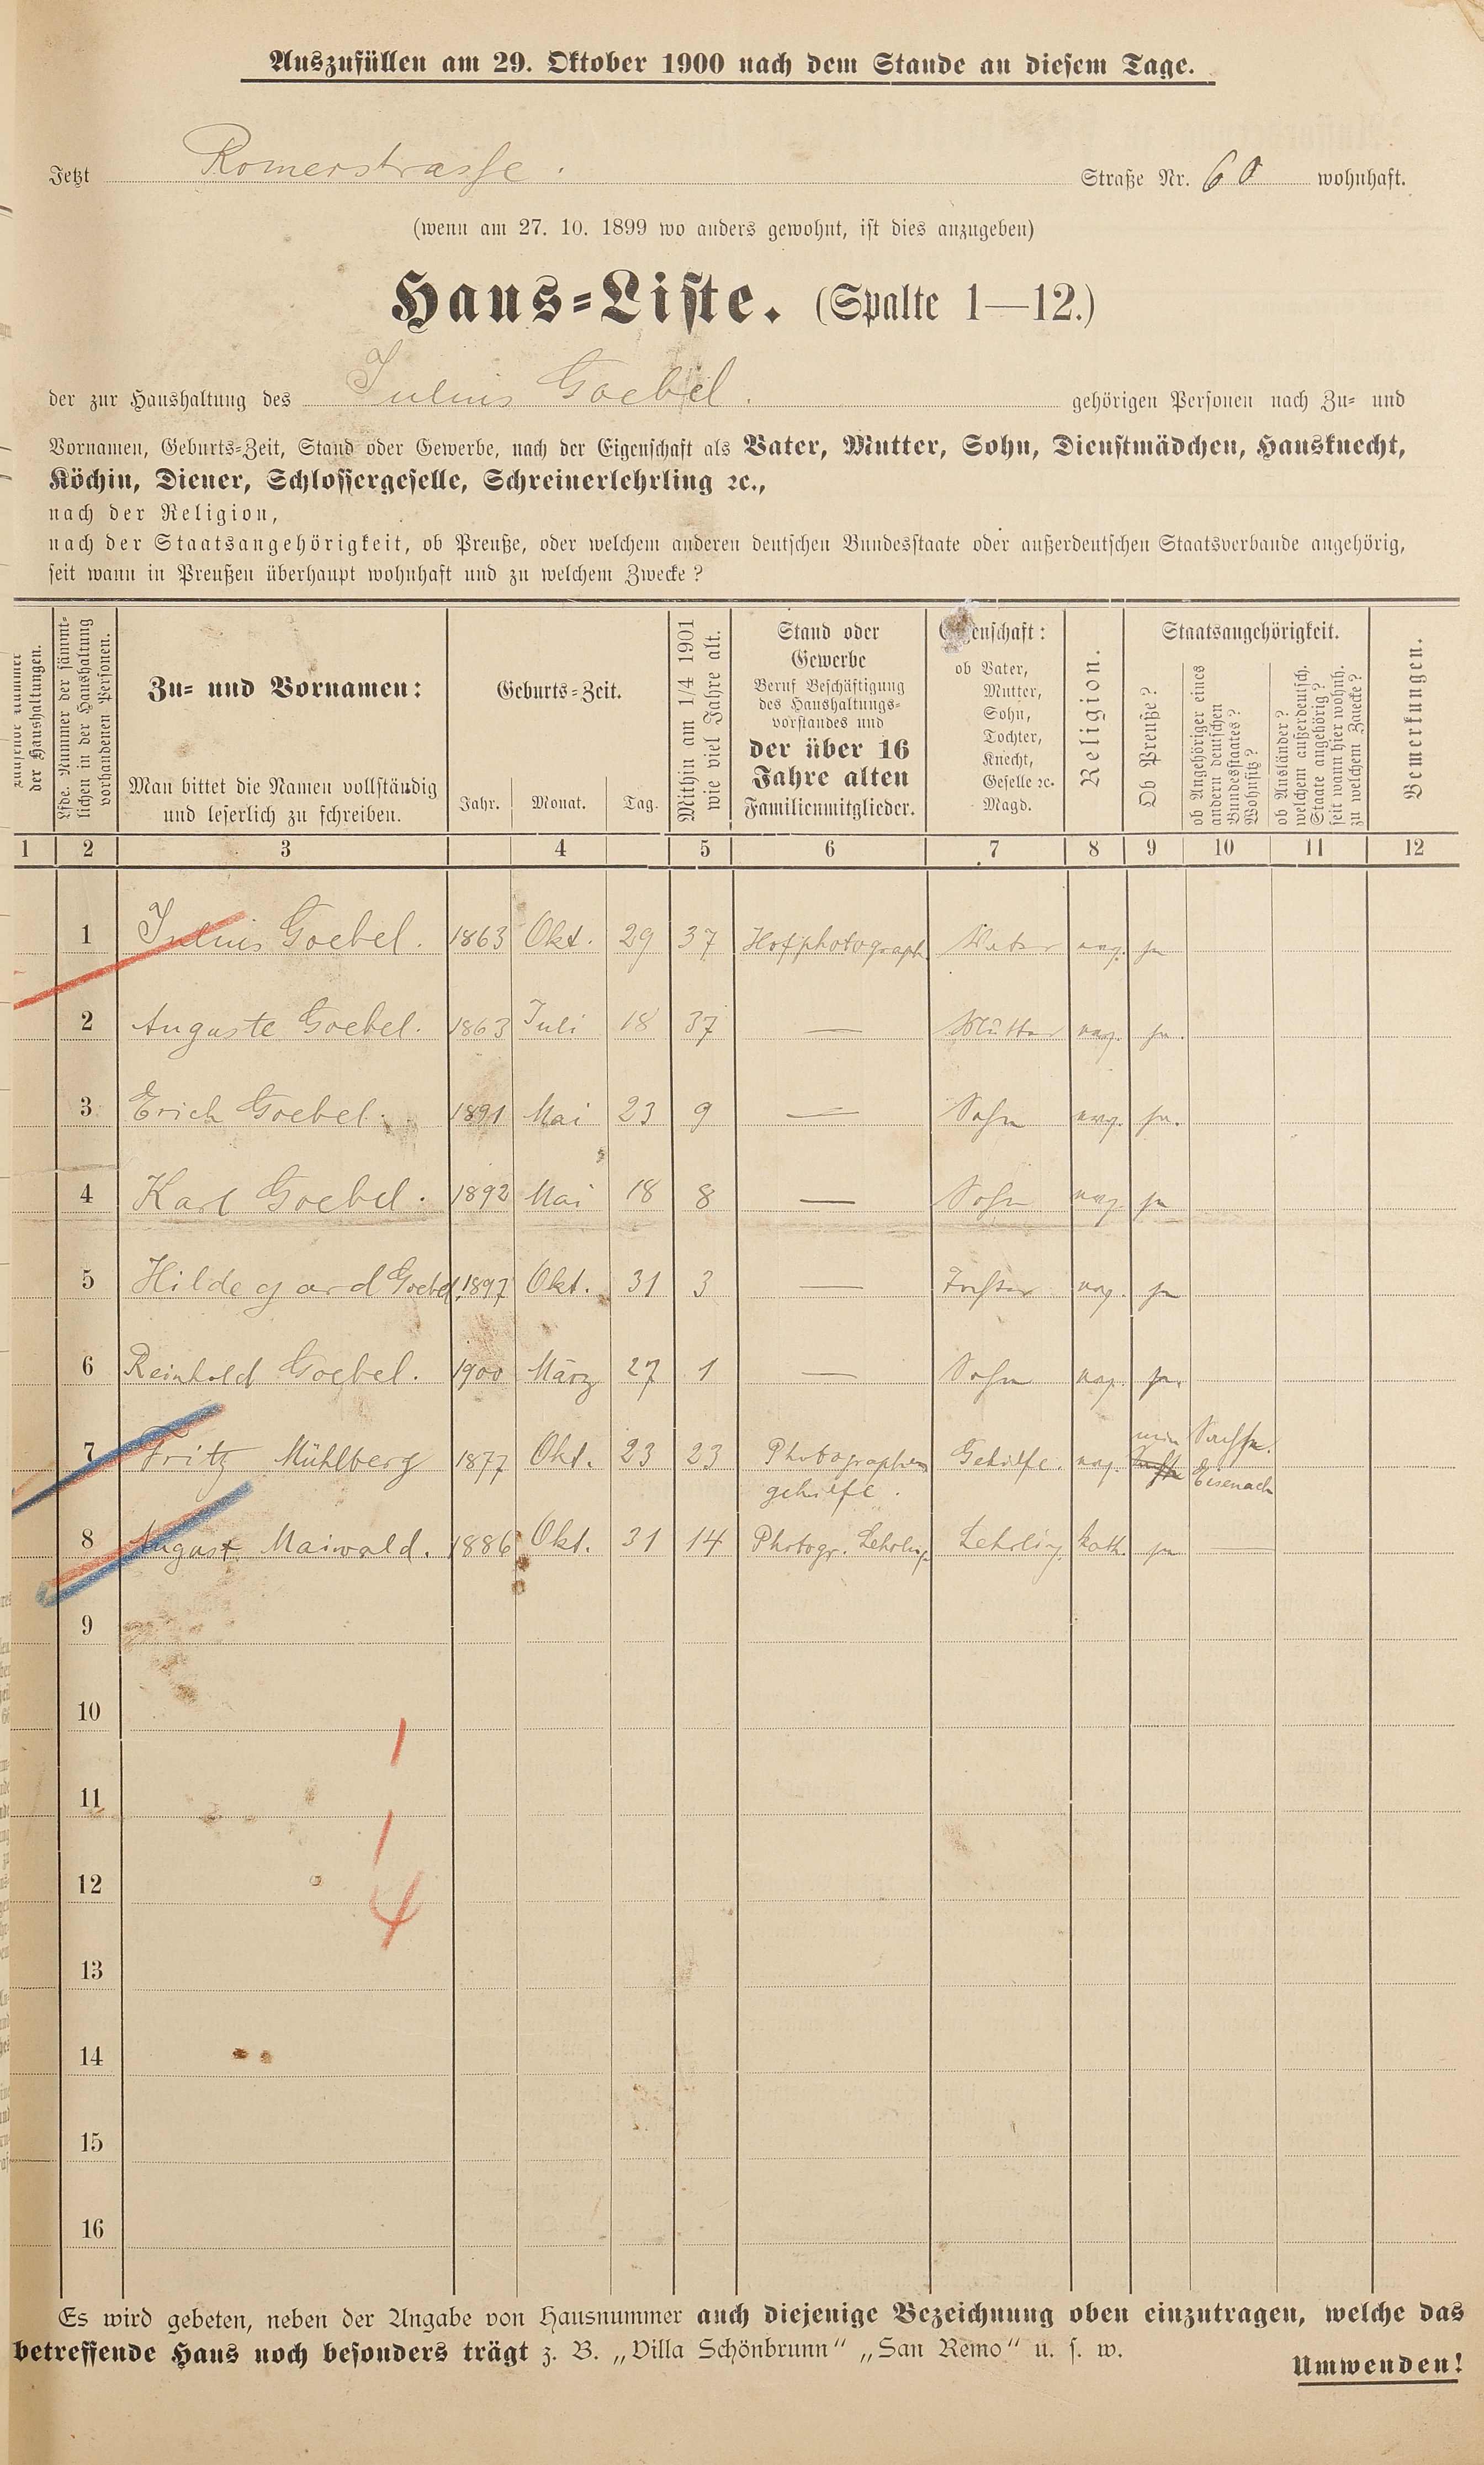 Auszufüllen am 29. Oktober 1900 nach dem Stande an diesem Tage.
Jetzt Romerstrasse. Straße Nr. 60 wohnhaft.
(wenn am 27. 10. 1899 wo anders gewohnt, ist dies anzugeben)
Haus-Liste. (Spalte 1—12.)
der zur Haushaltung des Julius Goebel. gehörigen Personen nach Zu- und
Vornamen, Geburts-Zeit, Stand oder Gewerbe, nach der Eigenschaft als Vater, Mutter, Sohn, Dienstmädchen, Hausknecht,
Köchin, Diener, Schlossergeselle, Schreinerlehrling ꝛc.,
nach der Religion,
nach der Staatsangehörigkeit, ob Preuße, oder welchem anderen deutschen Bundesstaate oder außerdeutschen Staatsverbande angehörig,
seit wann in Preußen überhaupt wohnhaft und zu welchem Zwecke?
der Haushaltungen.
Lfde. Nummer der sämmt-
lichen in der Haushaltung
vorhandenen Personen.
Zu- und Vornamen:
Man bittet die Namen vollständig
und leserlich zu schreiben.
Geburts-Zeit.
Jahr. Monat. Tag.
Mithin am 1/4 1901
wie viel Jahre alt.
Stand oder
Gewerbe
Beruf Beschäftigung
des Haushaltungs-
vorstandes und
der über 16
Jahre alten
Familienmitglieder.
Eigenschaft:
ob Vater,
Mutter,
Sohn,
Tochter,
Knecht,
Geselle ꝛc.
Magd.
Religion.
Staatsangehörigkeit.
Ob Preuße?
ob Angehöriger eines
andern deutschen
Bundesstaates?
Wohnsitz?
ob Ausländer?
welchem außerdeutsch.
Staate angehörig?
seit wann hier wohnh.
zu welchem Zwecke?
Bemerkungen.
1 2 3 4 5 6 7 8 9 10 11 12
1 Julius Goebel. 1863 Okt. 29 37 Hofphotograph Vater evg. ja
2 Auguste Goebel. 1863 Juli 18 37 — Mutter evg. ja.
3 Erich Goebel. 1891 Mai 23 9 — Sohn evg. ja.
4 Karl Goebel. 1892 Mai 18 8 — Sohn evg. ja
5 Hildegard Goebel. 1897 Okt. 31 3 — Tochter evg. ja
6 Reinhold Goebel. 1900 März 27 1 — Sohn evg. ja.
7 Fritz Mühlberg 1877 Okt. 23 23 Photographen Gehilfe. evg. nein Sachse.
gehilfe. Eisenach
8 August Maiwald. 1886 Okt. 31 14 Photogr. Lehrling Lehrling kath. ja —
9
10
1
11
1
12
4
13
14
15
16
Es wird gebeten, neben der Angabe von Hausnummer auch diejenige Bezeichnung oben einzutragen, welche das
betreffende Haus noch besonders trägt z. B. „Villa Schönbrunn“ „San Remo“ u. s. w.
Umwenden!